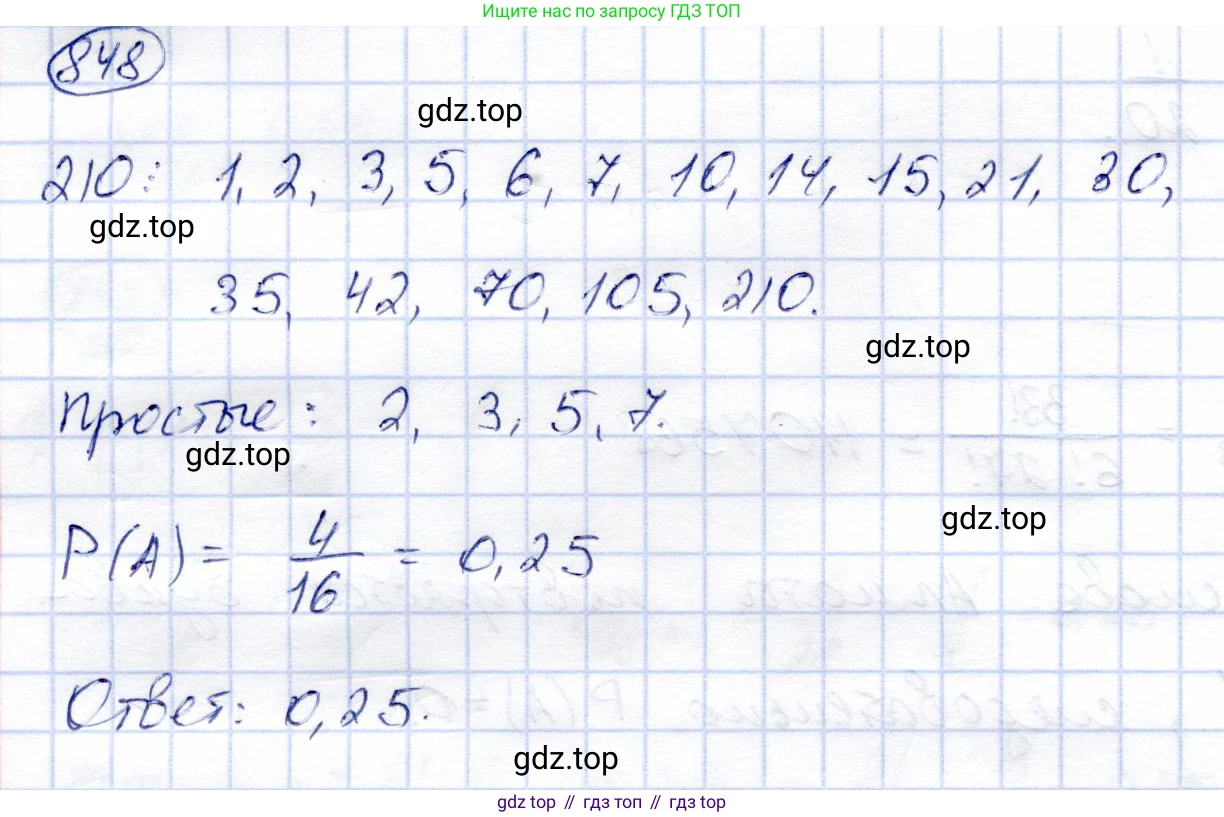 Ищите нас по запросу ГДЗ ТОП
848
gdz.top
210: 1, 2, 3, 5, 6, 7, 10, 14, 15, 21, 30,
gdz.top
35, 42, 70, 105, 210.
gdz.top
Простые: 2, 3, 5, 7.
gdz.top
gdz.top
P(A) = 4/16 = 0,25
Ответ: 0,25.
gdz.top
gdz top // гдз топ // гдз top